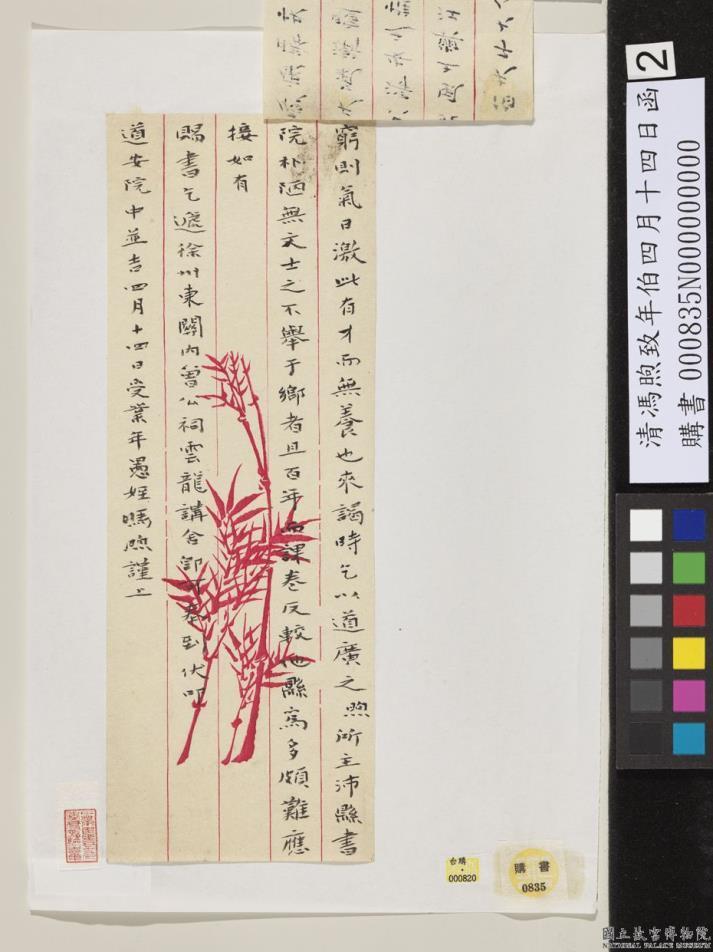 窮則氣日激此有才而無養也來謁時乞以道廣之煦所主沛縣書
院朴陋無文士之不舉于鄉者且百年而課卷反較他縣為多頗難應
接如有
賜書乞遞徐州東關內曾公祠雲龍講舍即可奉到伏叩
道安院中並吉四月十四日受業年愚姪馮煦謹上
2
清馮煦致年伯四月十四日函
購書 000835N000000000
台購
000820
購書
0835
國立故宮博物院
NATIONAL PALACE MUSEUM